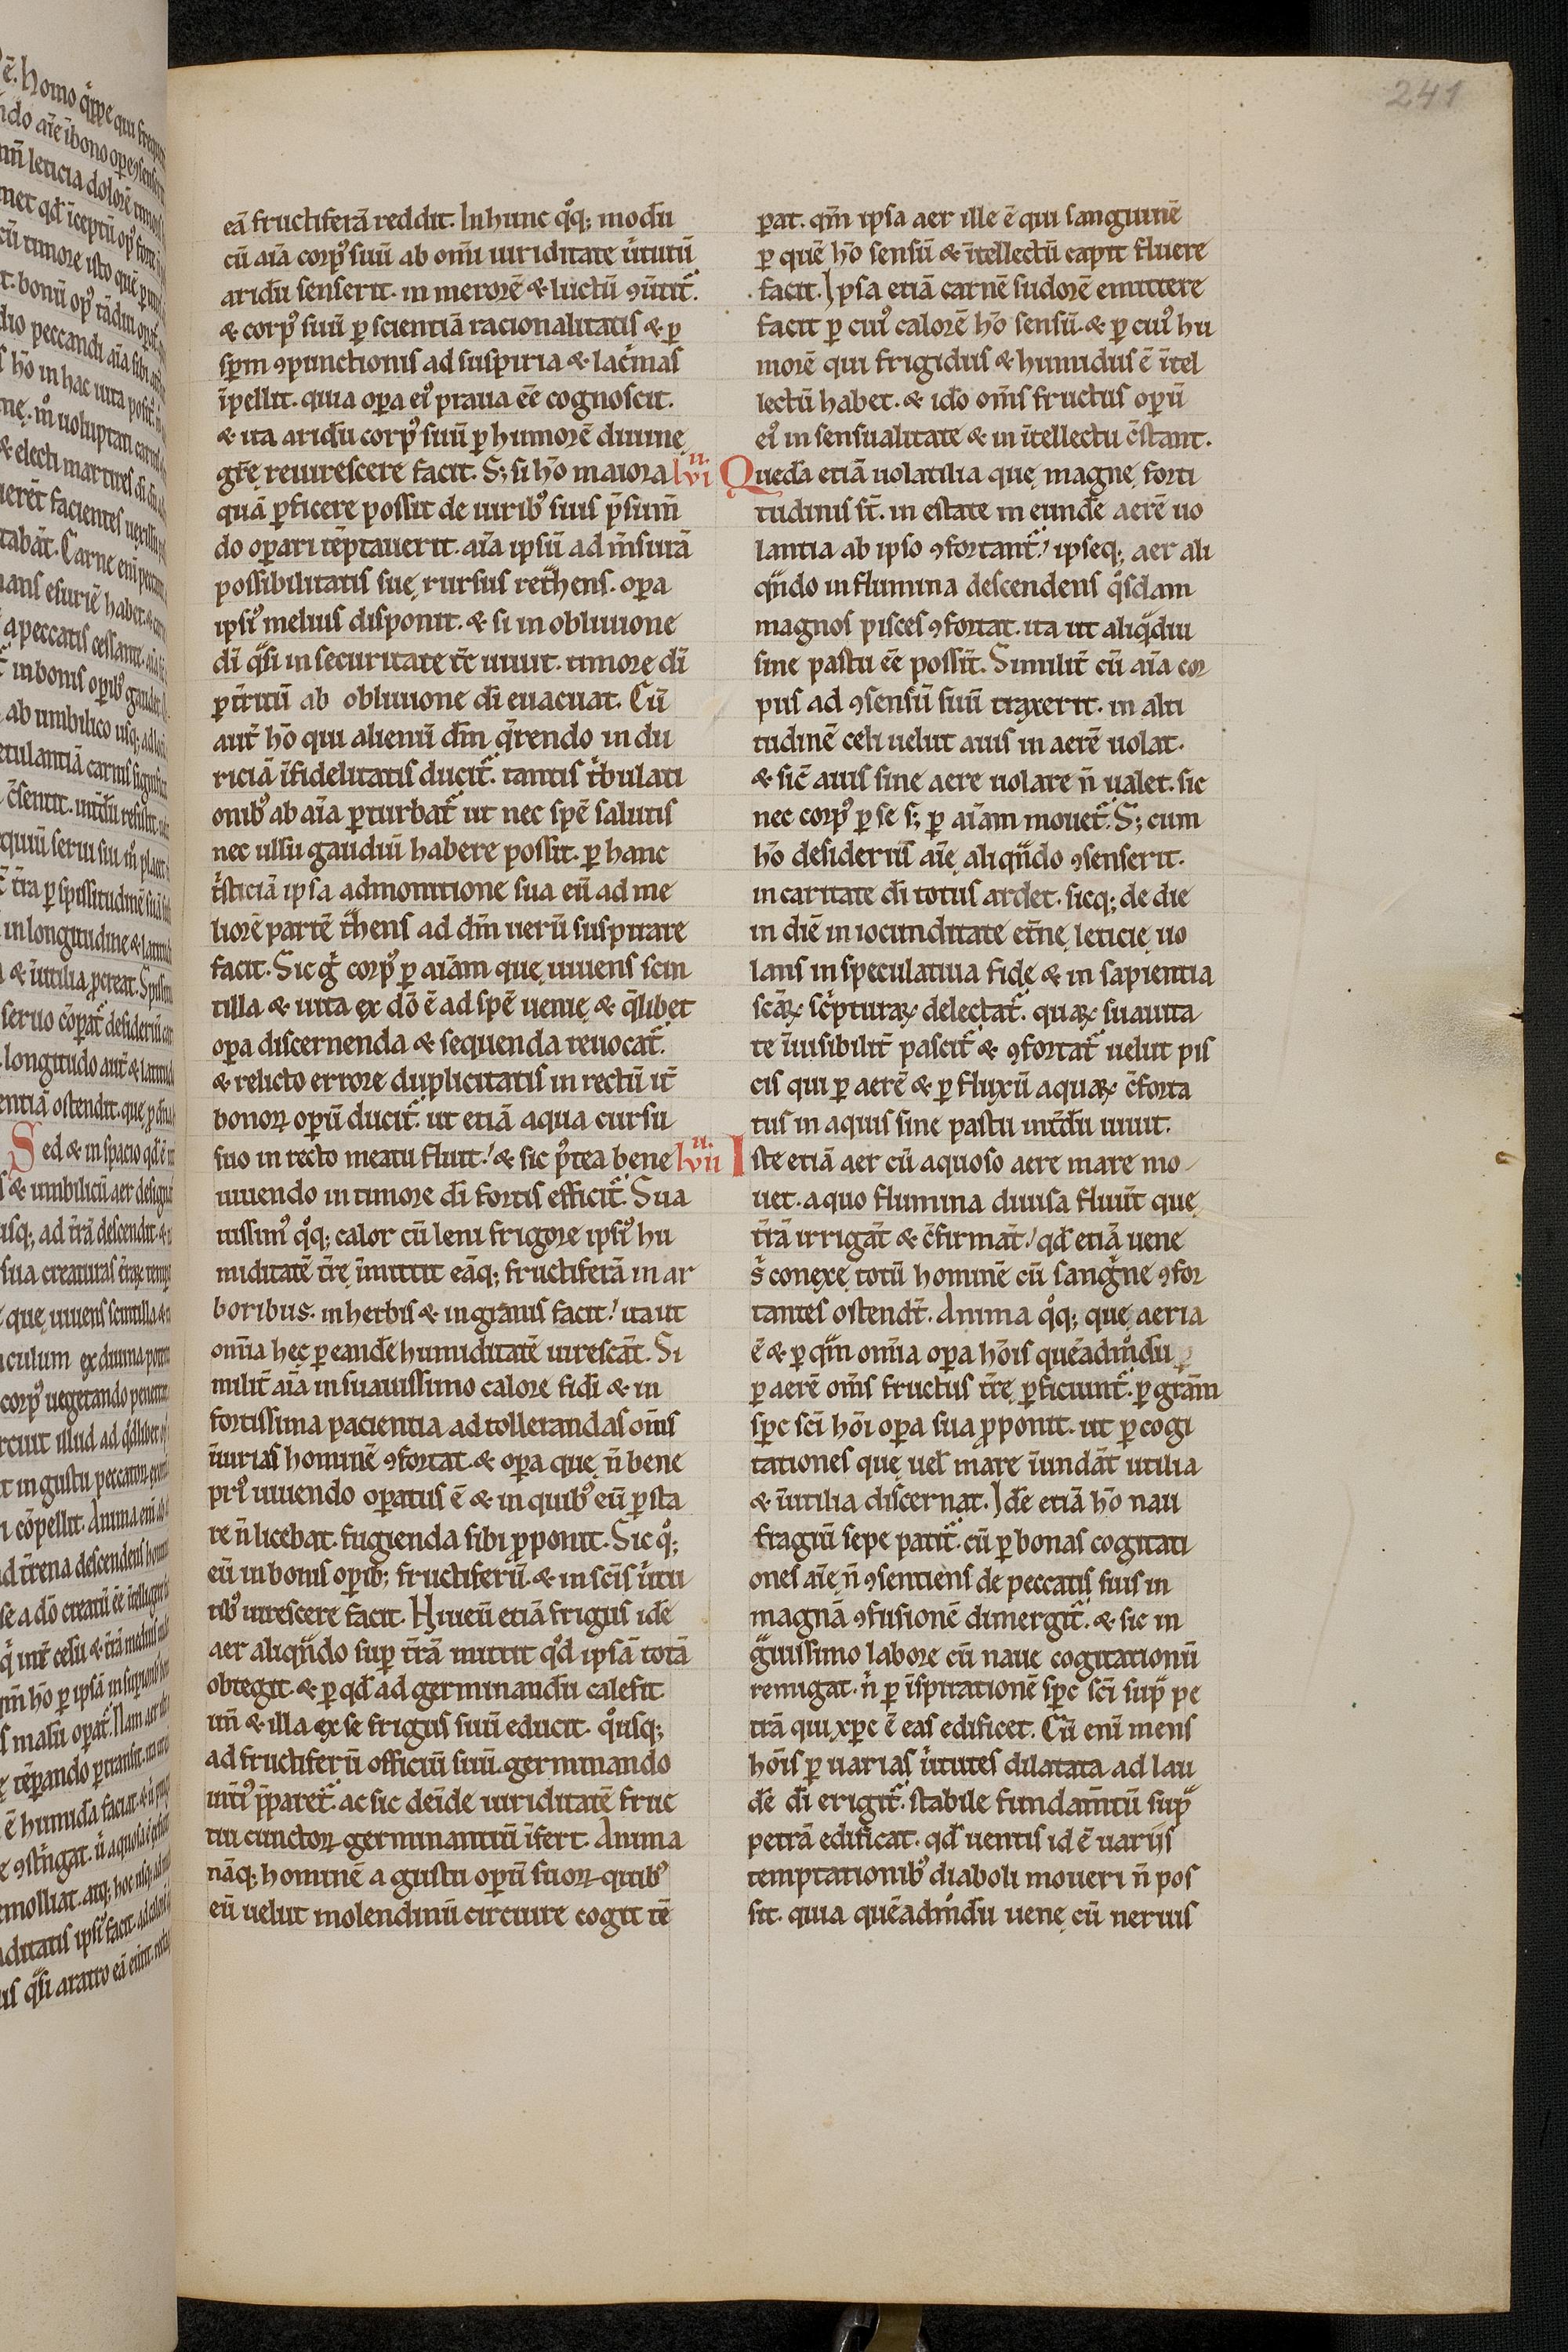 241
eā fructiferā reddit. Inhunc qͦq; modū
cū aīa corpꝰ suū ab om̄i uiriditate ůtutū
aridū senserit. in merorē & luctū ꝯůtit᷑.
& corpꝰ suū ꝑ scientiā racionalitatis & ꝑ
sp̄m ꝯpunctionis ad suspiria & lac̓mas
īpellit. quia oꝑa eiꝰ praua eē cognoscit.
& ita aridū corpꝰ suū ꝑ humorē diuinę
gr̄ę reuirescere facit. S; si hō maiora
quā ꝑficere possit de uiribꝰ suis p̄sum̄
do oꝑari tēptauerit. aīa ipsū ad m̄surā
possibilitatis suę rursus ret͛hens. oꝑa
ipsiꝰ melius disponit. & si in obliuione
dī q̈si in securitate tr̄e uiuit. timore dī
ꝑt̄ritū ab obliuione dī euacuat. Cū
aut̄ hō qui alienū dm̄ q̄rendo in du
riciā īfidelitatis ducit᷑. tantis t̓bulati
onibꝰ ab aīa ꝑturbat᷑ ut nec spē salutis
nec ullū gaudiū habere possit. ꝑ hanc
t̓sticiā ipsa admonitione sua eū ad me
liorē partē t͛hens ad dm̄ uerū suspirare
facit. Sic g̊ corpꝰ ꝑ aīam quę uiuens scin
tilla & uita ex dō ē ad spē uenię & q̄libet
oꝑa discernenda & sequenda reuocat᷑.
& relicto errore duplicitatis in rectū it̄
bonoꝝ oꝑū ducit᷑. ut etiā aqua cursu
suo in recto meatu fluit! & sic p̊tea bene
uiuendo in timore dī fortis efficit᷑. Sua
uissimꝰ qͦq; calor cū leni frigore ipsiꝰ hu
miditatē tr̄ę īmittit eāq; fructiferā in ar
boribus. in herbis & in granis facit! ita ut
om̄ia hęc ꝑ eandē humiditatē uirescāt. Si
milit̄ aīa in suauissimo calore fidī & in
fortissima pacientia ad tollerandas om̄s
īiurias hominē ꝯfortat. & oꝑa quę n̄ bene
priꝰ uiuendo oꝑatus ē & in quibꝰ eū ꝑsta
re n̄ licebat. fugienda sibi ꝓponit. Sic qͦ;
eū in bonis oꝑib; fructiferū. & in sc̄is ůtu
tibꝰ uirescere facit. Hiueū etiā frigus idē
aer aliqn̈do suꝑ tr̄ā mittit qͦd ipsā totā
obtegit. & ꝑ qd̄ ad germinandū calefit
un̄ & illa ex se frigus suū educit. qͦusq;
ad fructiferū officiū suū. germinando
uit̄iꝰ p̄paret᷑. ac sic deīde uiriditatē fruc
tui cunctoꝝ germinantiū īfert. Anima
nāq; hominē a gustu oꝑū suoꝝ quibꝰ
eū uelut molendinū circuire cogit tē
ꝑat. qm̄ ipsa aer ille ē qui sanguinē
ꝑ quē hō sensū & ītellectū capit fluere
facit. Ipsa etiā carnē sudorē emittere
facit ꝑ cuiꝰ calorē hō sensū. & ꝑ cuiꝰ hu
morē qui frigidus & humidus ē ītel
lectū habet. & idō om̄s fructus oꝑū
eiꝰ in sensualitate & in ītellectu c̄stant.
lvi Quedā etiā uolatilia quę magnę forti
tudinis st̄. in estate in eundē aerē uo
lantia ab ipso ꝯfortant᷑! ipseq; aer ali
qn̈do in flumina descendens q̊sdam
magnos pisces ꝯfortat. ita ut aliq̈diu
sine pastu eē possīt. Similit̄ cū aīa cor
pus ad ꝯsensū suū traxerit. in alti
tudinē celi uelut auis in aerē uolat.
& sic̄ auis sine aere uolare n̄ ualet. sic
nec corpꝰ ꝑ se s; ꝑ aīam mouet᷑. S; cum
hō desideriū aīę aliqn̈do ꝯsenserit.
in caritate dī totus ardet. sicq; de die
in diē in iocunditate et̄nę leticię uo
lans in speculatiua fidę & in sapientia
scāꝝ sc̓pturaꝝ delectat᷑. quaꝝ suauita
te īuisibilit̄ pascit᷑ & ꝯfortat᷑ uelut pis
cis qui ꝑ aerē & ꝑ fluxū aquaꝝ c̄forta
tus in aquis sine pastu int̄dū uiuit.
lvii Iste etiā aer cū aquoso aere mare mo
uet. a quo flumina diuisa fluūt quę
tr̄ā irrigāt & c̄firmāt! qd̄ etiā uene
s̓ conexę totū hominē cū sang̓ne ꝯfor
tantes ostendt̄. Anima qͦq; quę aeria
ē & ꝑ qm̈ om̄ia oꝑa hōis quēadmͦdū
ꝑ aerē om̄s fructus tr̄ę ꝑficiunt᷑. ꝑ grām
sp̄c scī hōi oꝑa sua ꝓponit. ut ꝑ cogi
tationes quę uel̄ mare īundāt utilia
& īutilia discernat. Idē etiā hō nau
fragiū sepe patit᷑. cū ꝑ bonas cogitati
ones aīę n̄ ꝯsentiens de peccatis suis in
magnā ꝯfusionē dimergit᷑. & sic in
g̈uissimo labore cū naue cogitationū
remigat. n̓ ꝑ īspirationē sp̄c scī suꝑ pe
trā qui xp̄c ē eas edificet. Cū eni mens
hōis ꝑ uarias ůtutes dilatata ad lau
dē dī erigit᷑. stabile fundam̄tū suꝑ
petrā edificat. qd̄ uentis id ē uariis
temptationibꝰ diaboli moueri n̄ pos
sit. quia quēadmͦdū uenę cū neruis